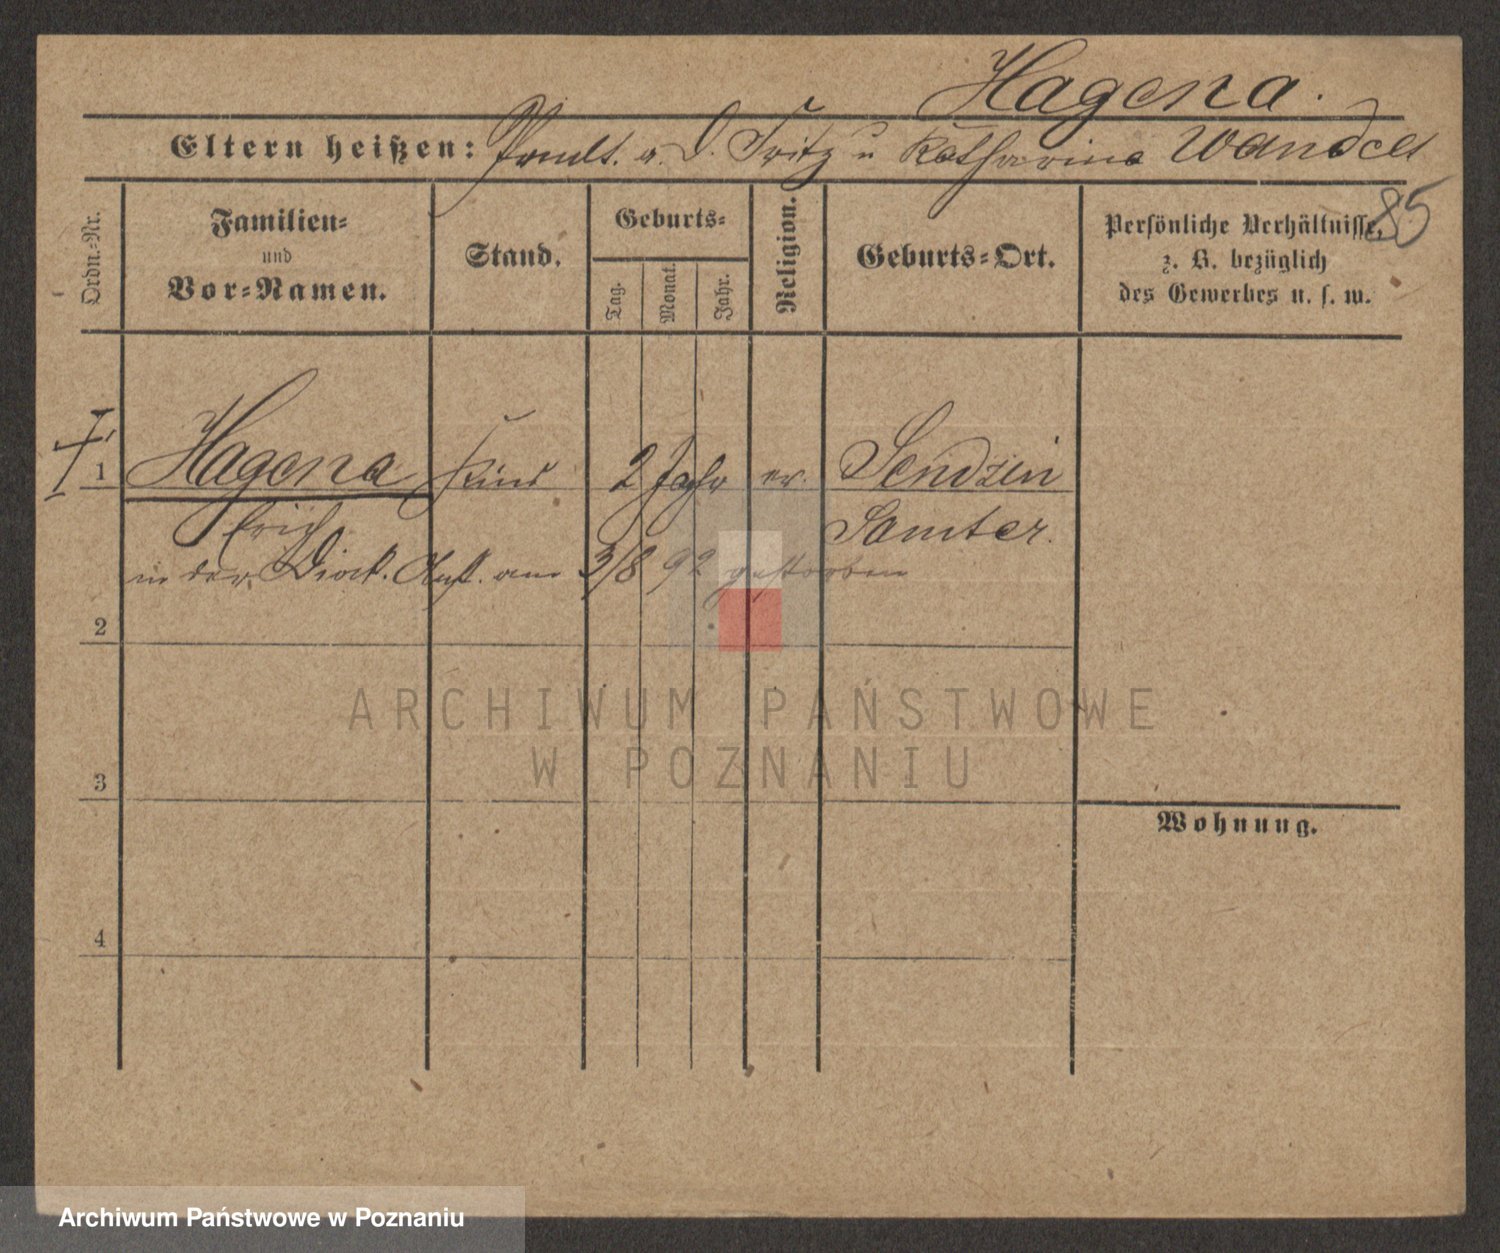 Hagena.
Eltern heißen: a. D. Fritz u Katharina Wandel
85
Ordn.-Nr.
Familien-
und
Vor-Namen.
Stand.
Geburts-
Tag.
Monat.
Jahr.
Religion.
Geburts-Ort.
Persönliche Verhältnisse,
z. B. bezüglich
des Gewerbes u. s. w.
1 Hagena Kind 2 Jahr ev. Sendzin
Erich Samter.
in der Diak. Anst. am 3/8 92 gestorben
2
3
4
Wohnung.
ARCHIWUM PAŃSTWOWE
W POZNANIU
Archiwum Państwowe w Poznaniu